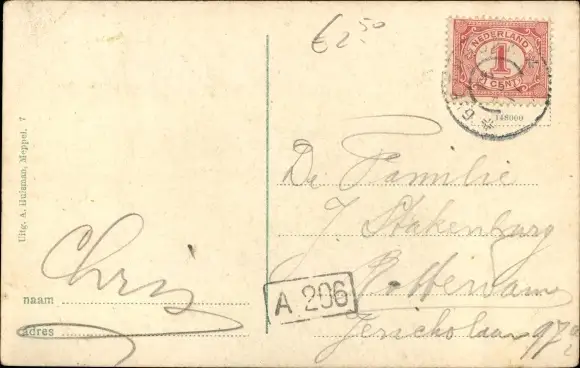 € 2,50
NEDERLAND
1
CENT
148000
Uitg. A. Huisman, Meppel. 7
De Familie
J Stakenburg
Rotterdam
Jericholaan 97
Chris
naam
adres
A 206